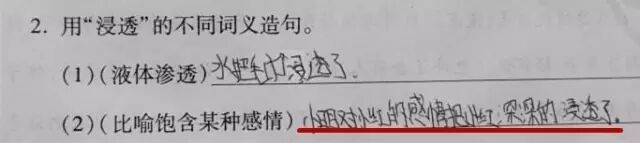 2. 用“浸透”的不同词义造句。
(1)(液体渗透)水把毛巾浸透了.
(2)(比喻饱含某种感情)小明对小红的感情把小红,深深的浸透了.